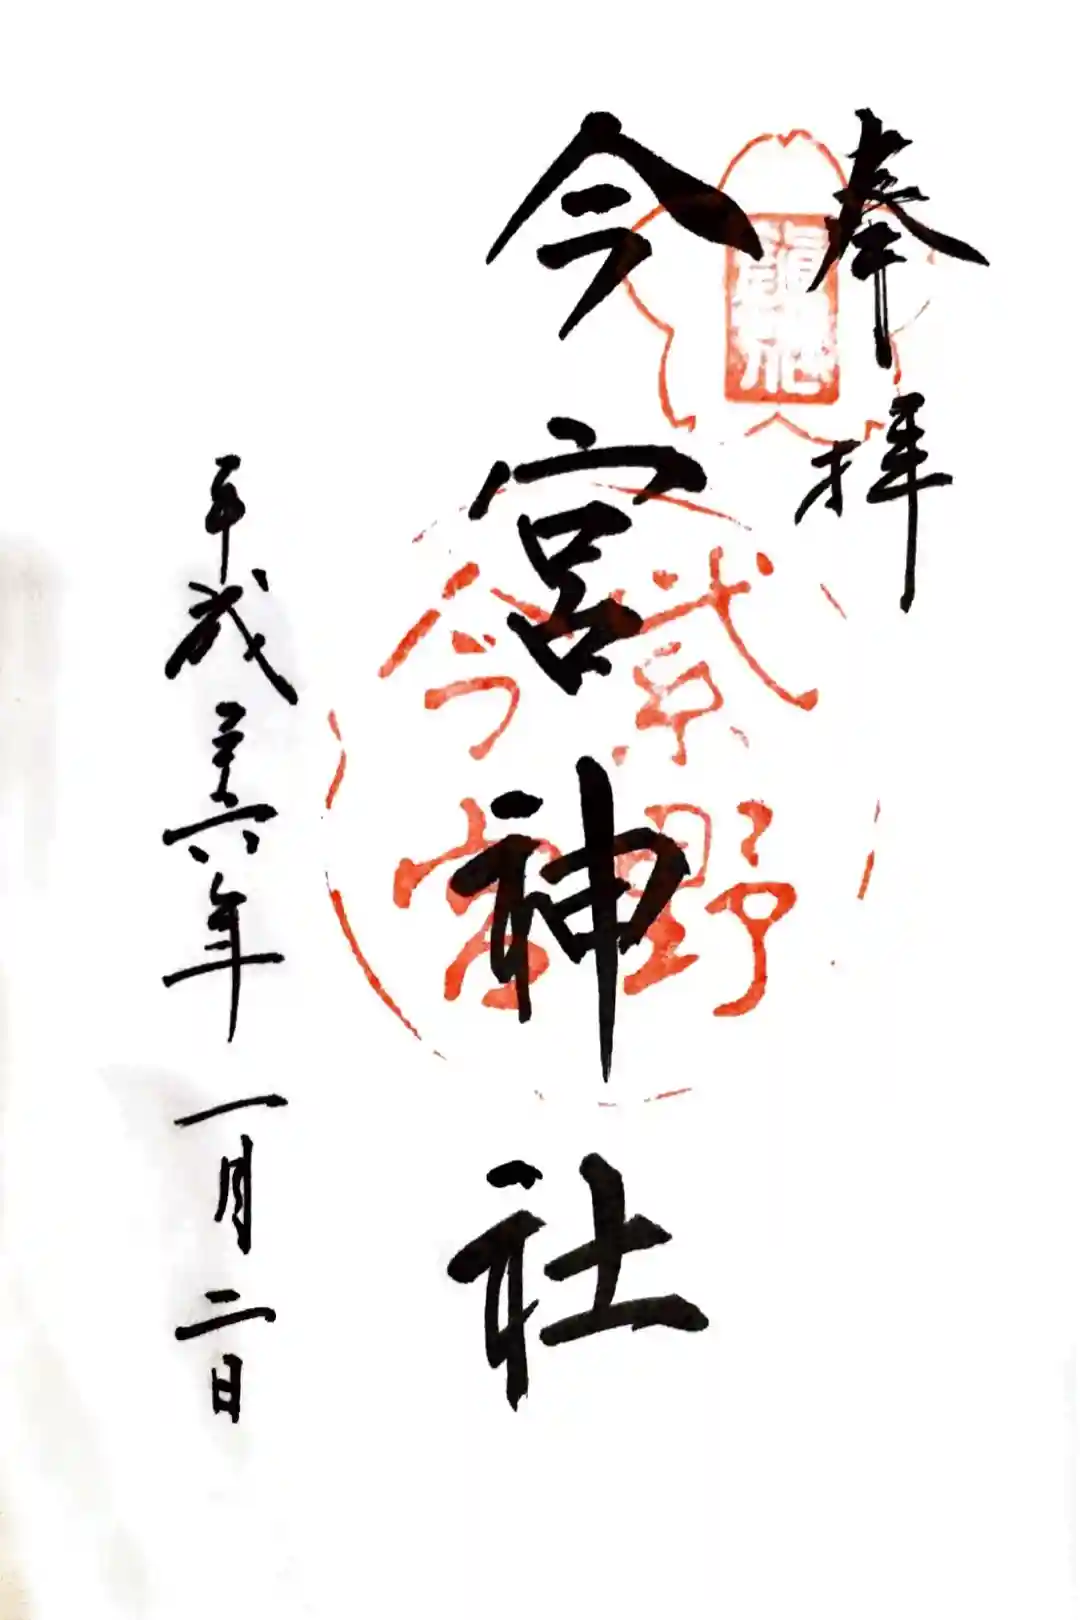 奉拝
今宮神社
紫野
今宮
平成二十六年一月二日